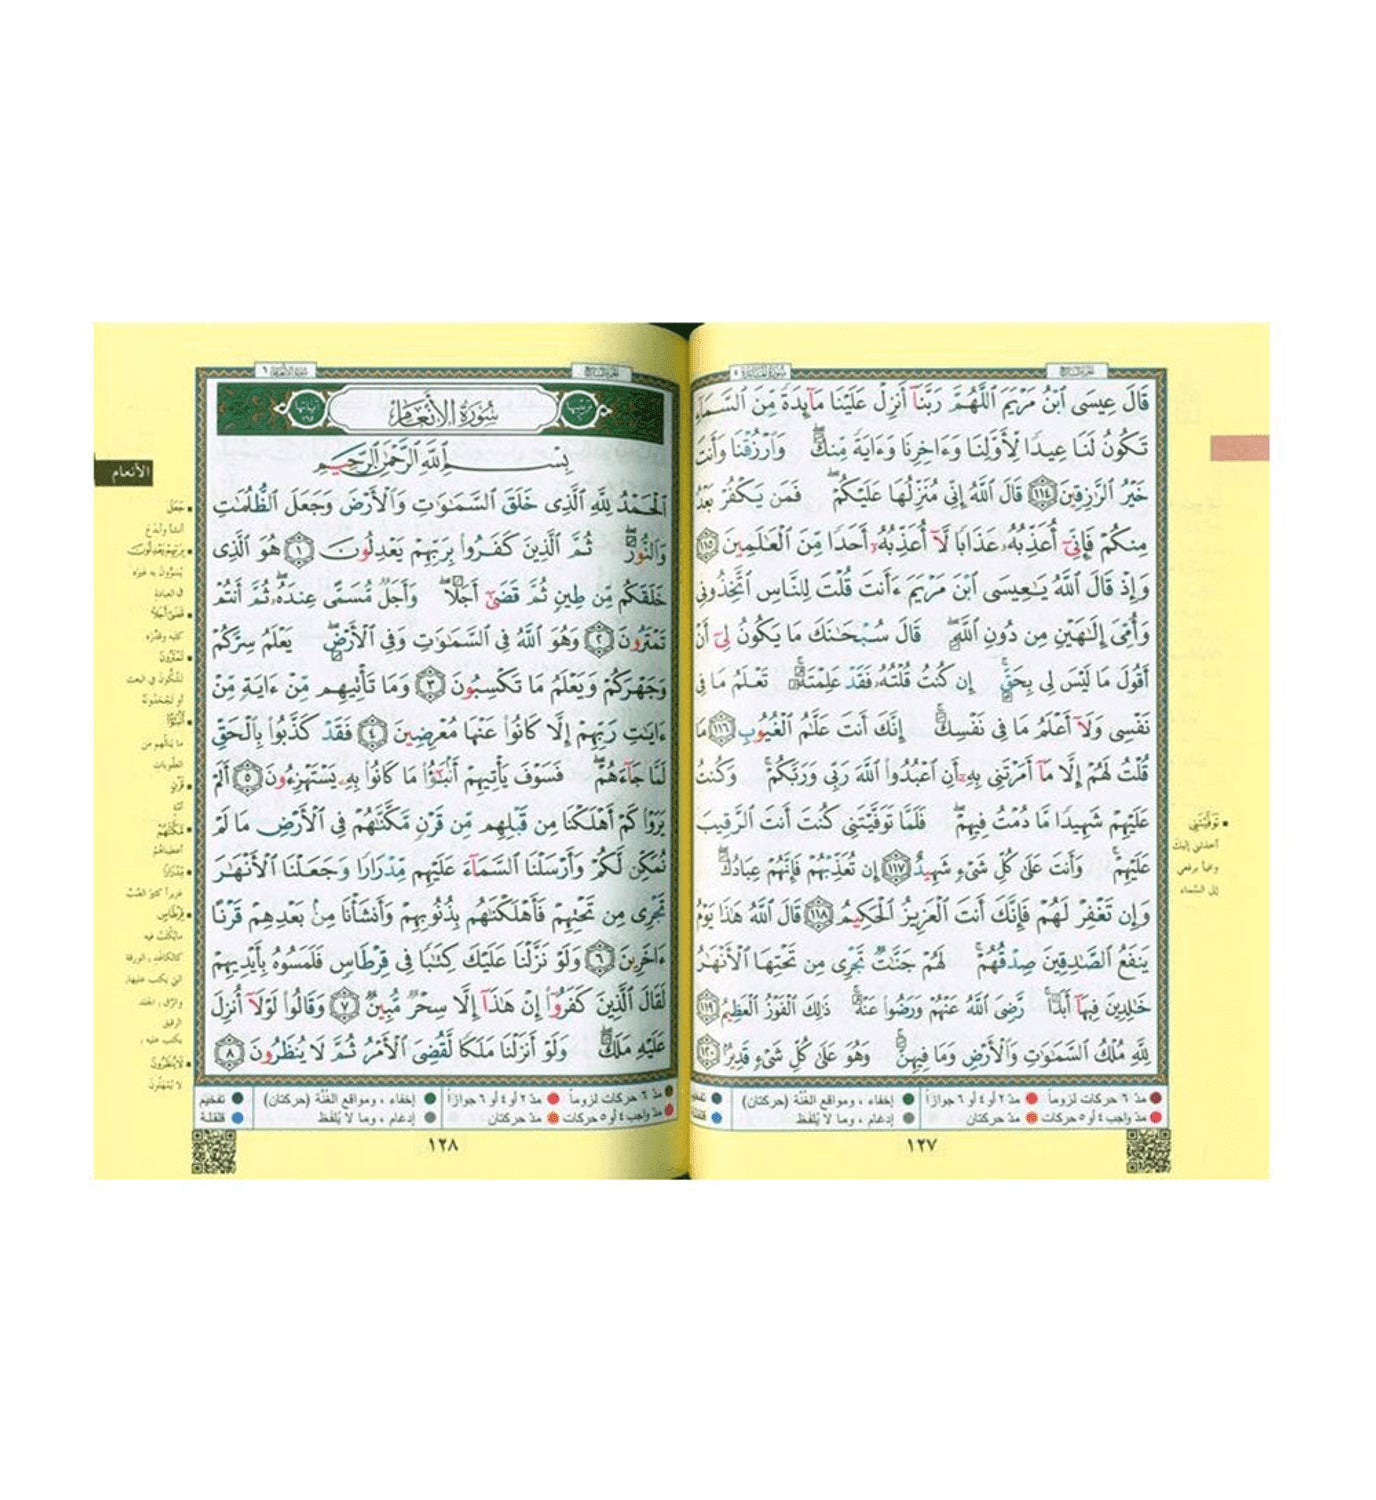 سورة المائدة ٥
الجزء السابع
قَالَ عِيسَى ٱبْنُ مَرْيَمَ ٱللَّهُمَّ رَبَّنَآ أَنزِلْ عَلَيْنَا مَآئِدَةً مِّنَ ٱلسَّمَآءِ
تَكُونُ لَنَا عِيدًا لِّأَوَّلِنَا وَءَاخِرِنَا وَءَايَةً مِّنكَ ۖ وَٱرْزُقْنَا وَأَنتَ
خَيْرُ ٱلرَّٰزِقِينَ ١١٤ قَالَ ٱللَّهُ إِنِّى مُنَزِّلُهَا عَلَيْكُمْ ۖ فَمَن يَكْفُرْ بَعْدُ
مِنكُمْ فَإِنِّىٓ أُعَذِّبُهُۥ عَذَابًا لَّآ أُعَذِّبُهُۥٓ أَحَدًا مِّنَ ٱلْعَٰلَمِينَ ١١٥
وَإِذْ قَالَ ٱللَّهُ يَٰعِيسَى ٱبْنَ مَرْيَمَ ءَأَنتَ قُلْتَ لِلنَّاسِ ٱتَّخِذُونِى
وَأُمِّىَ إِلَٰهَيْنِ مِن دُونِ ٱللَّهِ ۖ قَالَ سُبْحَٰنَكَ مَا يَكُونُ لِىٓ أَنْ
أَقُولَ مَا لَيْسَ لِى بِحَقٍّ ۚ إِن كُنتُ قُلْتُهُۥ فَقَدْ عَلِمْتَهُۥ ۚ تَعْلَمُ مَا فِى
نَفْسِى وَلَآ أَعْلَمُ مَا فِى نَفْسِكَ ۚ إِنَّكَ أَنتَ عَلَّٰمُ ٱلْغُيُوبِ ١١٦ مَا
قُلْتُ لَهُمْ إِلَّا مَآ أَمَرْتَنِى بِهِۦٓ أَنِ ٱعْبُدُوا۟ ٱللَّهَ رَبِّى وَرَبَّكُمْ ۚ وَكُنتُ
عَلَيْهِمْ شَهِيدًا مَّا دُمْتُ فِيهِمْ ۖ فَلَمَّا تَوَفَّيْتَنِى كُنتَ أَنتَ ٱلرَّقِيبَ
عَلَيْهِمْ ۚ وَأَنتَ عَلَىٰ كُلِّ شَىْءٍ شَهِيدٌ ١١٧ إِن تُعَذِّبْهُمْ فَإِنَّهُمْ عِبَادُكَ ۖ
وَإِن تَغْفِرْ لَهُمْ فَإِنَّكَ أَنتَ ٱلْعَزِيزُ ٱلْحَكِيمُ ١١٨ قَالَ ٱللَّهُ هَٰذَا يَوْمُ
يَنفَعُ ٱلصَّٰدِقِينَ صِدْقُهُمْ ۚ لَهُمْ جَنَّٰتٌ تَجْرِى مِن تَحْتِهَا ٱلْأَنْهَٰرُ
خَٰلِدِينَ فِيهَآ أَبَدًا ۚ رَّضِىَ ٱللَّهُ عَنْهُمْ وَرَضُوا۟ عَنْهُ ۚ ذَٰلِكَ ٱلْفَوْزُ ٱلْعَظِيمُ ١١٩
لِلَّهِ مُلْكُ ٱلسَّمَٰوَٰتِ وَٱلْأَرْضِ وَمَا فِيهِنَّ ۚ وَهُوَ عَلَىٰ كُلِّ شَىْءٍ قَدِيرٌۢ ١٢٠
تَوَفَّيْتَنِى
أخذتني إليك
وافياً برفعي
إلى السَّماء
مدّ ٦ حركات لزوماً مدّ ٢ أو ٤ أو ٦ جوازاً إخفاء ، ومواقع الغُنَّة (حركتان) تفخيم
مدّ واجب ٤ أو ٥ حركات مدّ حركتان إدغام ، وما لا يُلفَظ قلقلة
١٢٧
الجزء السابع
سورة الأنعام ٦
ترتيبها
سُورَةُ الأَنْعَامِ
آياتها
الأنعام
بِسْمِ ٱللَّهِ ٱلرَّحْمَٰنِ ٱلرَّحِيمِ
ٱلْحَمْدُ لِلَّهِ ٱلَّذِى خَلَقَ ٱلسَّمَٰوَٰتِ وَٱلْأَرْضَ وَجَعَلَ ٱلظُّلُمَٰتِ
وَٱلنُّورَ ۖ ثُمَّ ٱلَّذِينَ كَفَرُوا۟ بِرَبِّهِمْ يَعْدِلُونَ ١ هُوَ ٱلَّذِى
خَلَقَكُم مِّن طِينٍ ثُمَّ قَضَىٰٓ أَجَلًا ۖ وَأَجَلٌ مُّسَمًّى عِندَهُۥ ۖ ثُمَّ أَنتُمْ
تَمْتَرُونَ ٢ وَهُوَ ٱللَّهُ فِى ٱلسَّمَٰوَٰتِ وَفِى ٱلْأَرْضِ ۖ يَعْلَمُ سِرَّكُمْ
وَجَهْرَكُمْ وَيَعْلَمُ مَا تَكْسِبُونَ ٣ وَمَا تَأْتِيهِم مِّنْ ءَايَةٍ مِّنْ
ءَايَٰتِ رَبِّهِمْ إِلَّا كَانُوا۟ عَنْهَا مُعْرِضِينَ ٤ فَقَدْ كَذَّبُوا۟ بِٱلْحَقِّ
لَمَّا جَآءَهُمْ ۖ فَسَوْفَ يَأْتِيهِمْ أَنۢبَٰٓؤُا۟ مَا كَانُوا۟ بِهِۦ يَسْتَهْزِءُونَ ٥ أَلَمْ
يَرَوْا۟ كَمْ أَهْلَكْنَا مِن قَبْلِهِم مِّن قَرْنٍ مَّكَّنَّٰهُمْ فِى ٱلْأَرْضِ مَا لَمْ
نُمَكِّن لَّكُمْ وَأَرْسَلْنَا ٱلسَّمَآءَ عَلَيْهِم مِّدْرَارًا وَجَعَلْنَا ٱلْأَنْهَٰرَ
تَجْرِى مِن تَحْتِهِمْ فَأَهْلَكْنَٰهُم بِذُنُوبِهِمْ وَأَنشَأْنَا مِنۢ بَعْدِهِمْ قَرْنًا
ءَاخَرِينَ ٦ وَلَوْ نَزَّلْنَا عَلَيْكَ كِتَٰبًا فِى قِرْطَاسٍ فَلَمَسُوهُ بِأَيْدِيهِمْ
لَقَالَ ٱلَّذِينَ كَفَرُوٓا۟ إِنْ هَٰذَآ إِلَّا سِحْرٌ مُّبِينٌ ٧ وَقَالُوا۟ لَوْلَآ أُنزِلَ
عَلَيْهِ مَلَكٌ ۖ وَلَوْ أَنزَلْنَا مَلَكًا لَّقُضِىَ ٱلْأَمْرُ ثُمَّ لَا يُنظَرُونَ ٨
جَعَلَ
أنشأ وأبدعَ
بِرَبِّهِمْ يَعْدِلُونَ
يُسَوُّونَ به غيرَه
في العبادة
قَضَىٰ أَجَلًا
كتبه وقدَّره
تَمْتَرُونَ
تشُكُّونَ في البعث
أو تَجْحَدونَهُ
أَنْبَٰؤُا
ما ينالُهم من
العقوبات
قَرْنٍ
أمَّة
مَّكَّنَّٰهُمْ
أعطيناهُمْ
مِّدْرَارًا
غزيراً كثيرَ الصَّبِّ
قِرْطَاسٍ
مايُكْتَبُ فيه
كالكاغَد ، الورقة
التي يكتب عليها،
والرَّق ، الجلد
الرقيق
يكتب عليه ،
لَا يُنظَرُونَ
لا يُمْهَلُونَ
مدّ ٦ حركات لزوماً مدّ ٢ أو ٤ أو ٦ جوازاً إخفاء ، ومواقع الغُنَّة (حركتان) تفخيم
مدّ واجب ٤ أو ٥ حركات مدّ حركتان إدغام ، وما لا يُلفَظ قلقلة
١٢٨